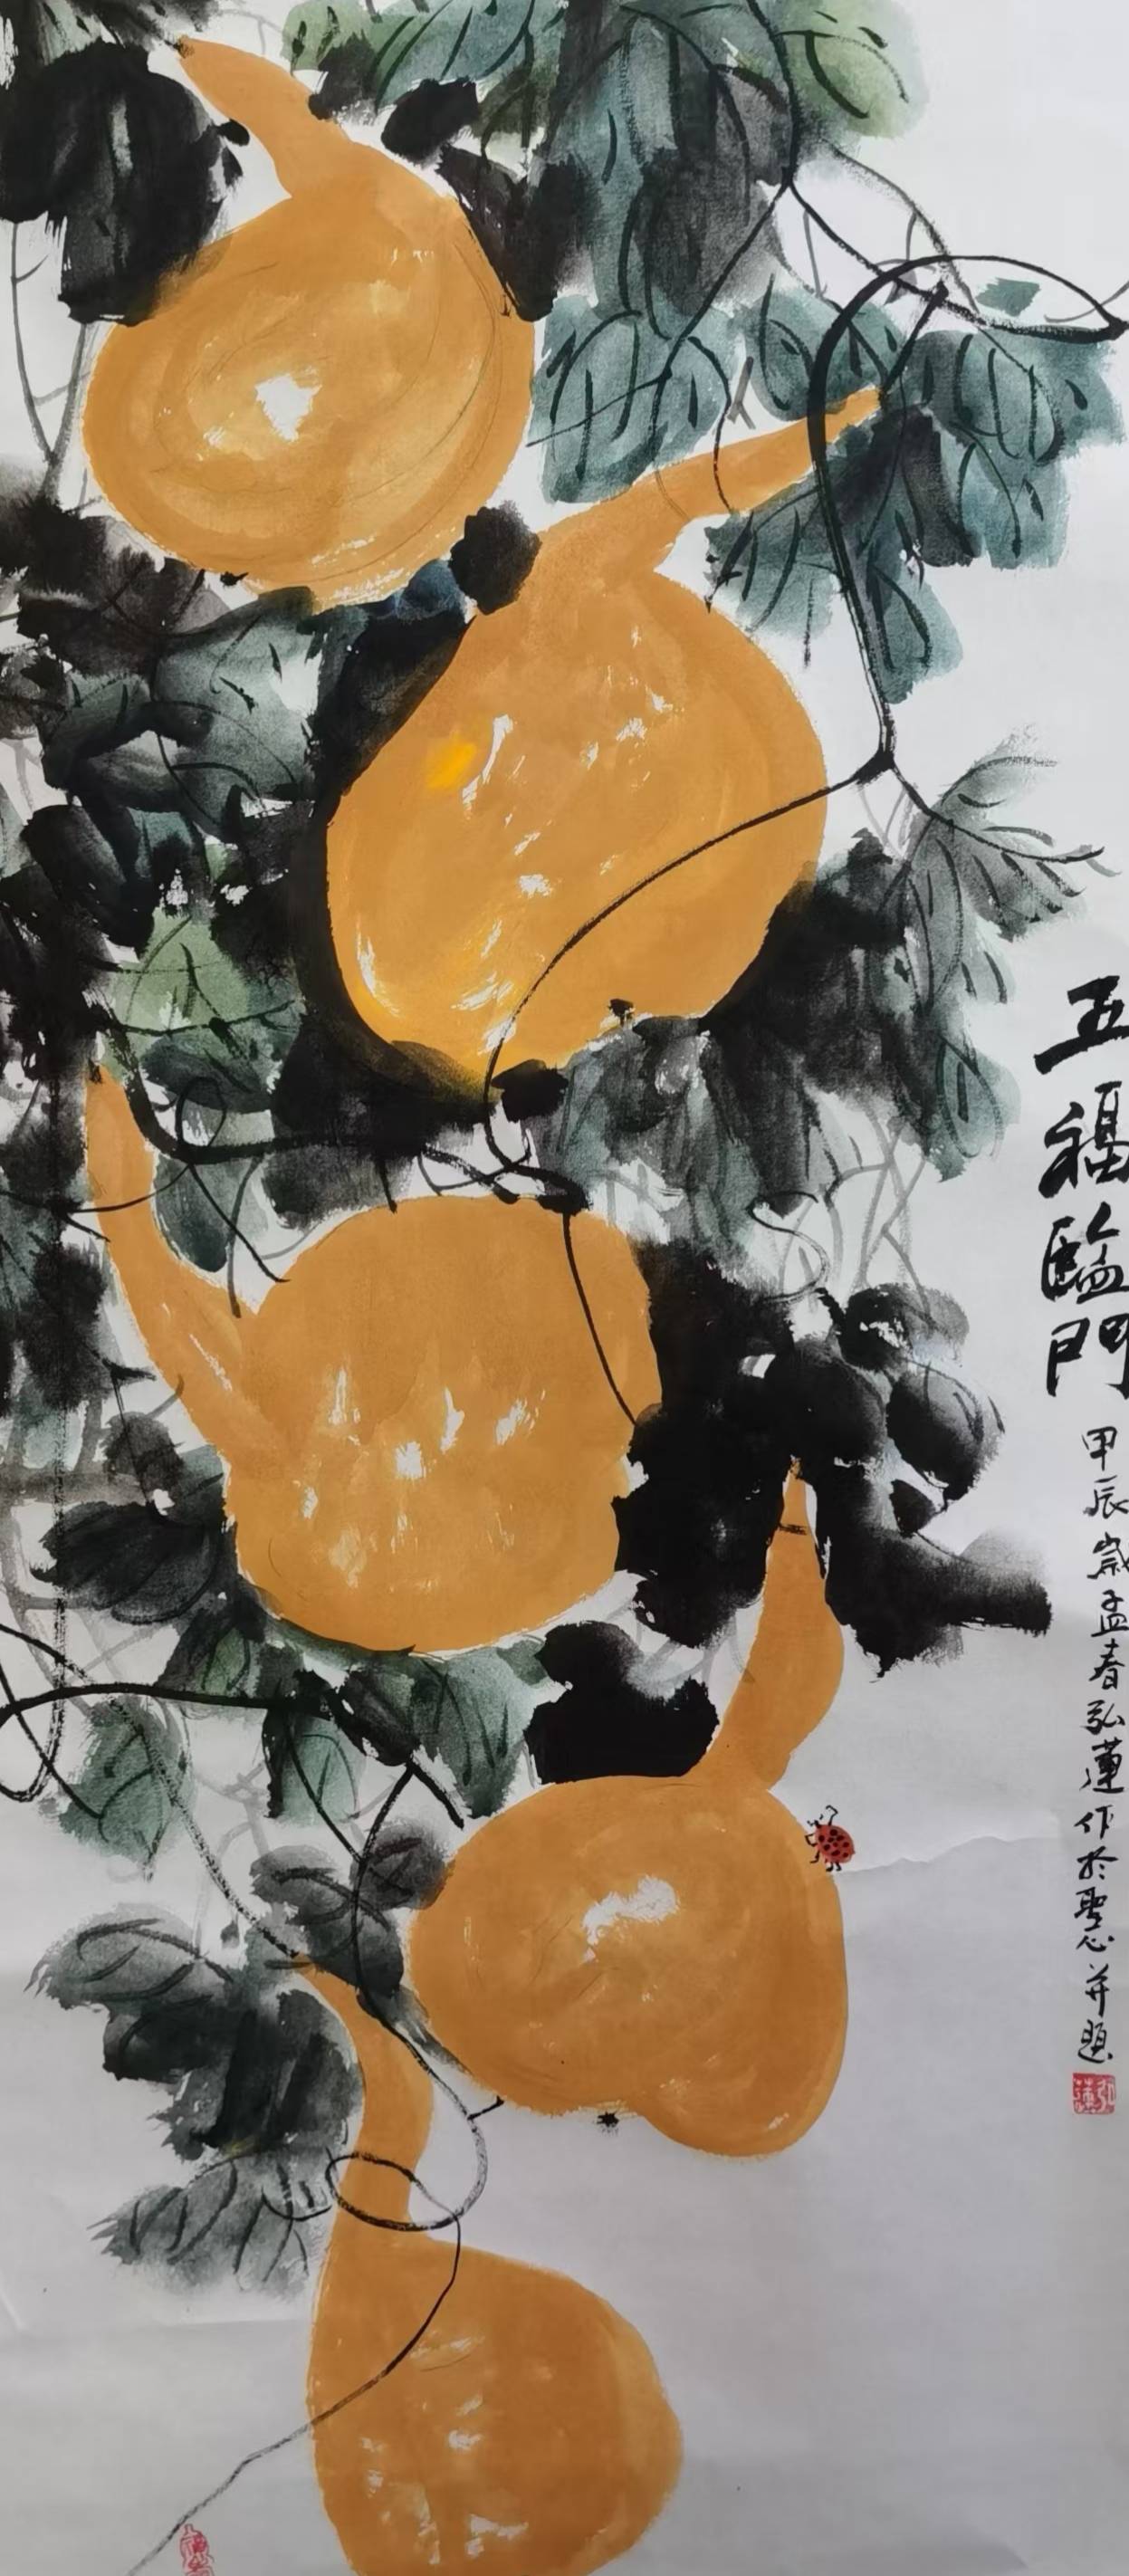 五福臨門
甲辰歲孟春弘蓮作於聖心并題